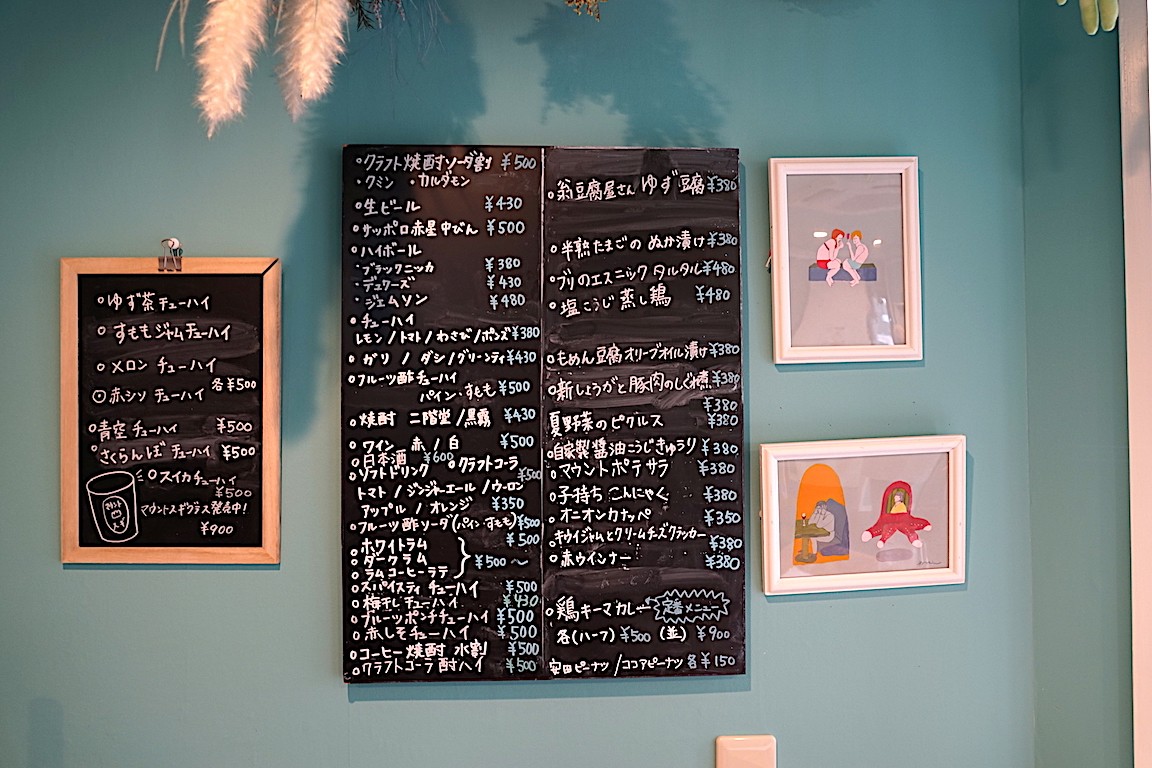 ○ゆず茶チューハイ
○すももジャムチューハイ
○メロン チューハイ
各¥500
⊙赤シソ チューハイ
○青空チューハイ ¥500
○さくらんぼ チューハイ ¥500
○スイカチューハイ
¥500
マウントスギグラス発売中!
¥900
○クラフト焼酎ソーダ割 ¥500
・クミン ・カルダモン
○生ビール ¥430
○サッポロ赤星中びん ¥500
○ハイボール
・ブラックニッカ ¥380
・デュワーズ ¥430
・ジェムソン ¥480
○チューハイ
レモン/トマト/わさび/ポンズ¥380
○ガリ / ダシ/グリーンティ¥430
○フルーツ酢チューハイ
パイン・すもも ¥500
○焼酎 二階堂/黒霧 ¥430
○ワイン 赤/白 ¥500
○日本酒 ¥600
○ソフトドリンク ○クラフトコーラ ¥500
トマト/ジンジャーエール/ウーロン
アップル/オレンジ ¥350
○フルーツ酢ソーダ(パイン すもも)¥500
¥500
○ホワイトラム
○ダークラム ¥500〜
○ラムコーヒーラテ
○スパイスティ チューハイ ¥500
○梅干しチューハイ ¥430
○フルーツポンチチューハイ ¥500
○赤しそチューハイ ¥500
○コーヒー焼酎 水割 ¥500
○クラフトコーラ酎ハイ ¥500
○翁豆腐屋さん ゆず豆腐¥380
○半熟たまごの ぬか漬け¥380
○ブリのエスニック タルタル¥480
○塩こうじ 蒸し鶏 ¥480
○もめん豆腐オリーブオイル漬け¥380
○新しょうがと豚肉のしぐれ煮¥380
¥380
夏野菜のピクルス ¥380
○自家製醤油こうじきゅうり ¥380
○マウントポテサラ ¥380
○子持ち こんにゃく ¥380
○オニオンカナッペ ¥350
○キウイジャムとクリームチーズクラッカー ¥380
○赤ウインナー ¥380
○鶏キーマカレー 定番メニュー
各(ハーフ)¥500 (並) ¥900
安田ピーナツ/ココアピーナツ 各¥150